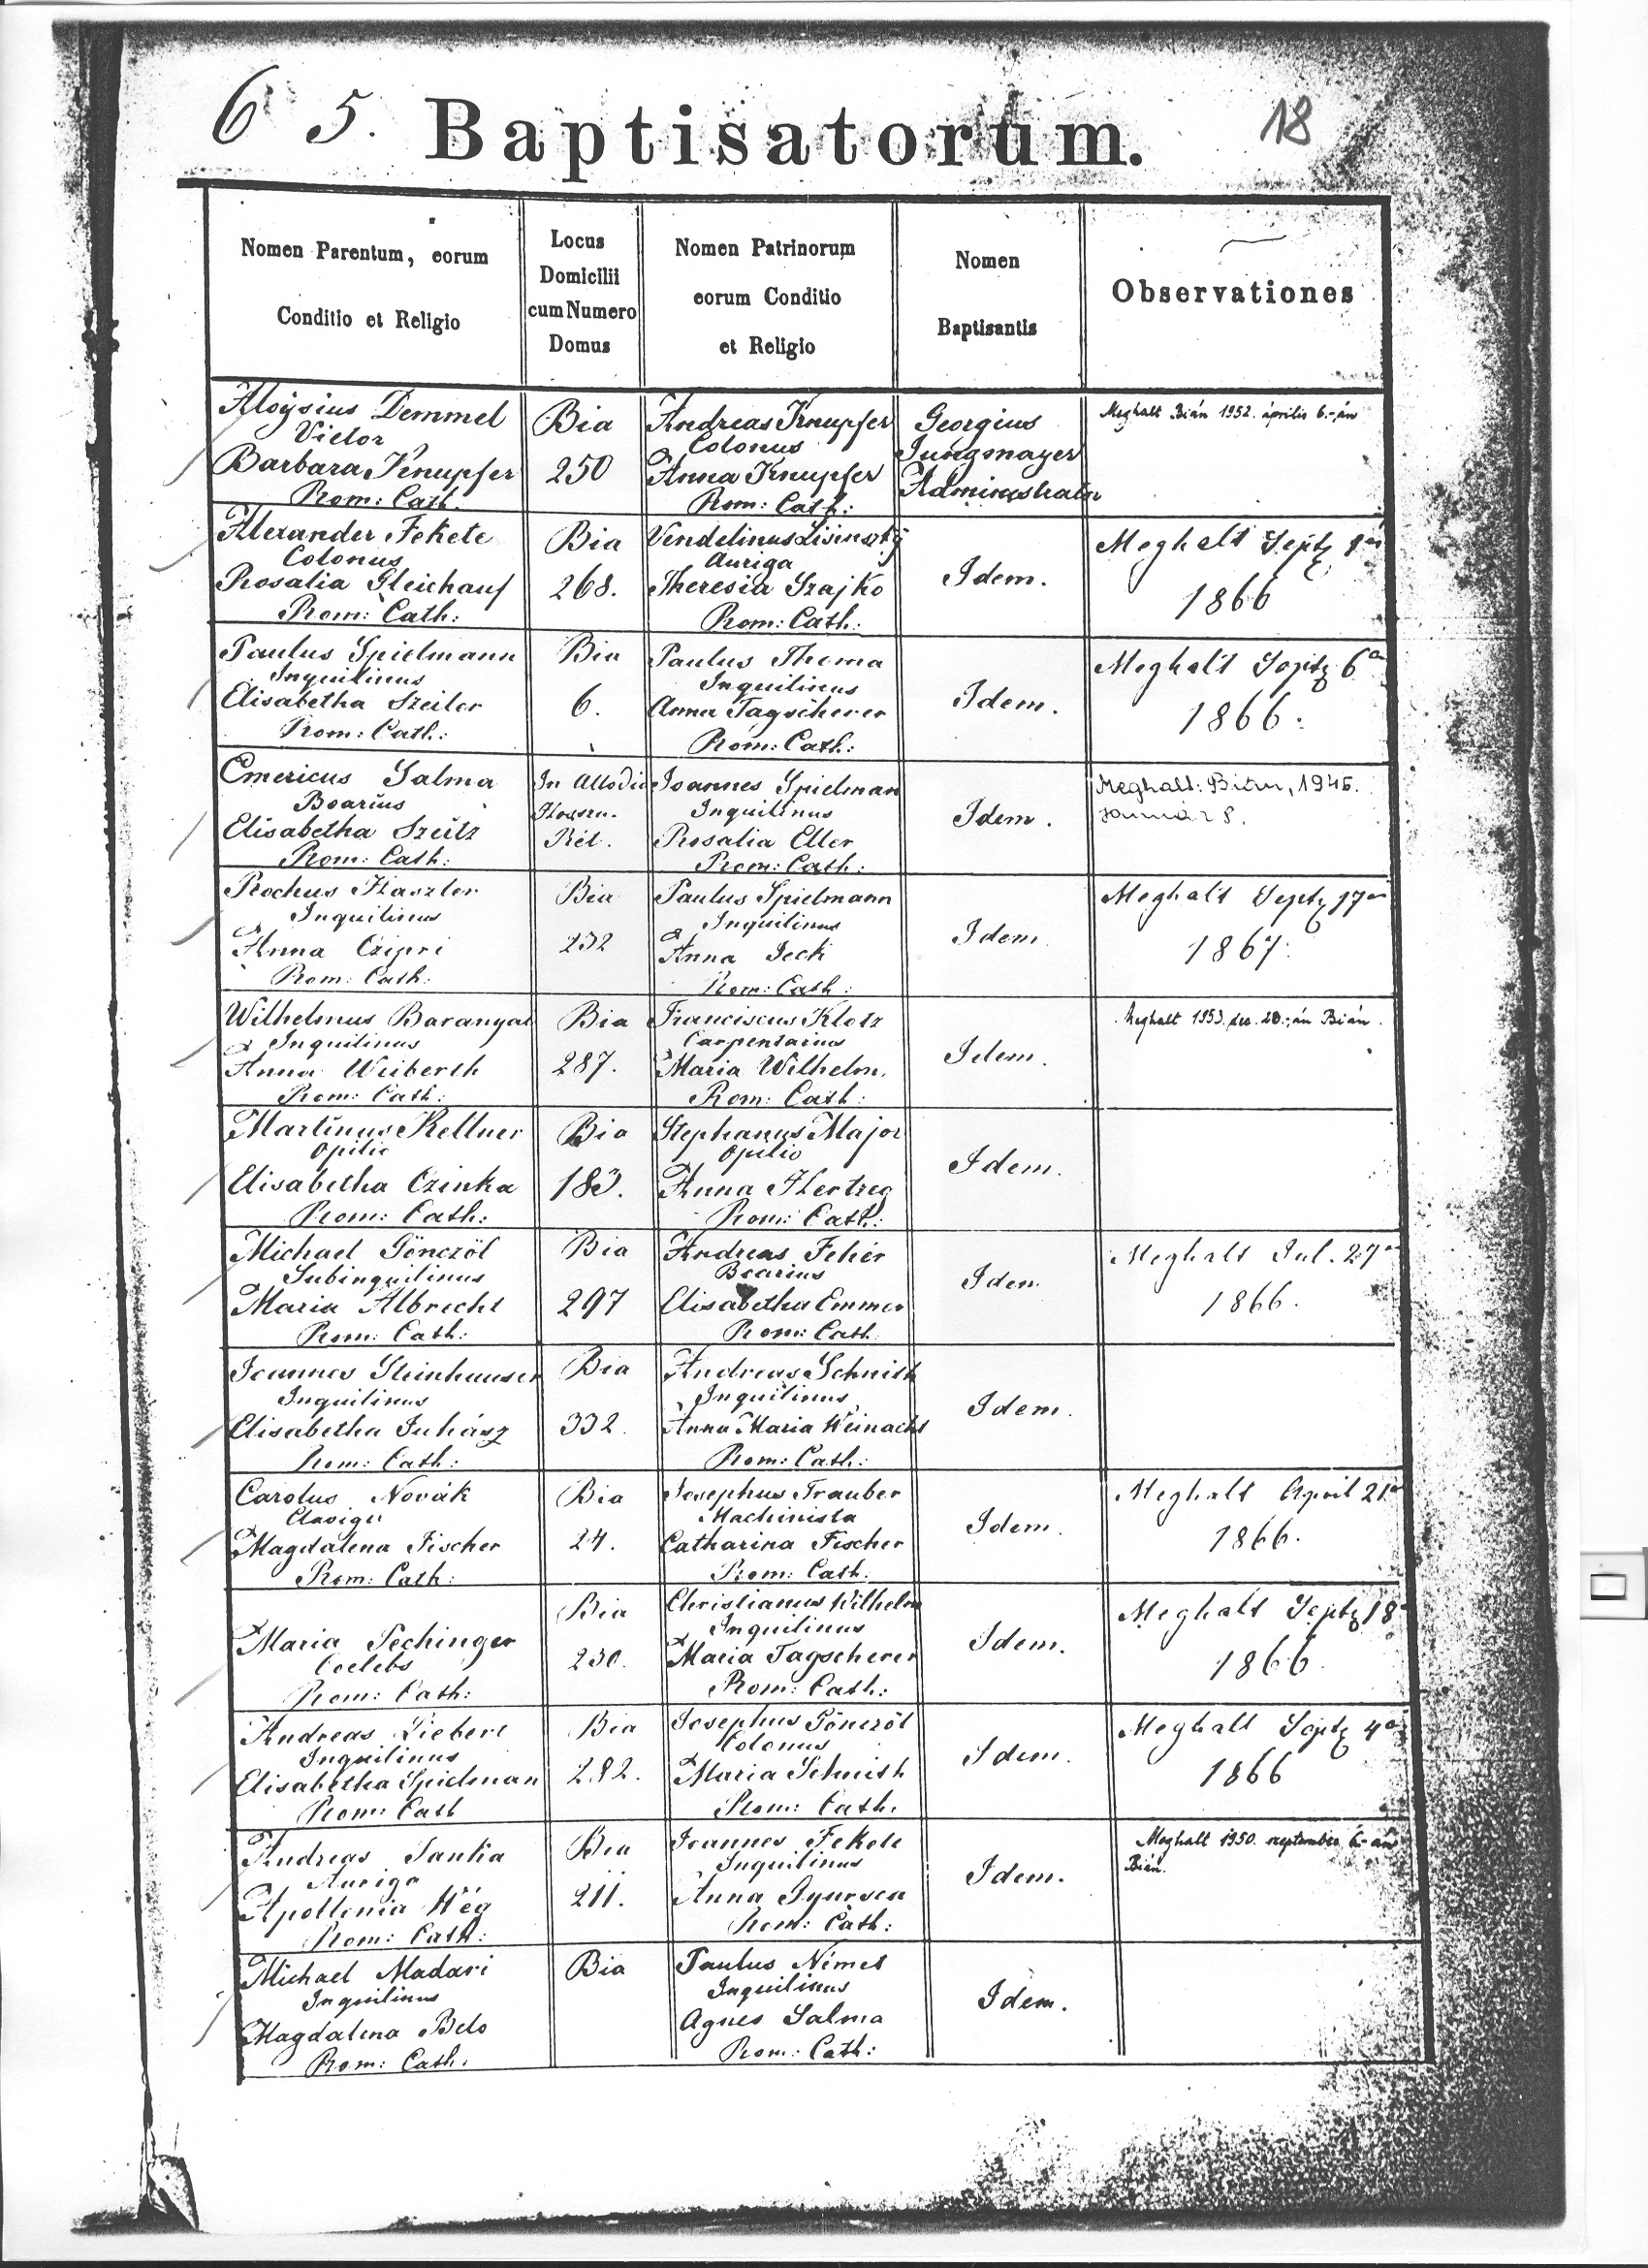 6 5. Baptisatorum. 18
Nomen Parentum, eorum
Conditio et Religio
Locus
Domicilii
cum Numero
Domus
Nomen Patrinorum
eorum Conditio
et Religio
Nomen
Baptisantis
Observationes
Aloysius Demmel
Vietor
Barbara Knupfer
Rom: Cath.
Bia
250
Andreas Knupfer
Colonus
Anna Knupfer
Rom: Cath:
Georgius
Jungmayer
Administrator
Meghalt Bián 1952. április 6.-án
Alexander Fekete
Colonus
Rosalia Gleichauf
Rom: Cath:
Bia
268.
Vendelinus
Auriga
Theresia Szajko
Rom: Cath:
Idem.
Meghalt Septz
1866
Paulus Spielmann
Inquilinus
Elisabetha Szeiler
Rom: Cath:
Bia
6.
Paulus Thoma
Inquilinus
Anna Tagscherer
Rom: Cath:
Idem.
Meghalt Septz 6
1866.
Emericus Salma
Boarius
Elisabetha Szeitz
Rom: Cath:
In Allodio
Rét.
Joannes Spielman
Inquilinus
Rosalia Eller
Rom: Cath:
Idem.
Meghalt: Bián, 1945.
Január 8.
Rochus Haszler
Inquilinus
Anna Czipri
Rom: Cath:
Bia
232
Paulus Spielmann
Inquilinus
Anna Jeck
Rom: Cath:
Idem
Meghalt Septz 17
1867.
Wilhelmus Baranyai
Inquilinus
Anna Weiberth
Rom: Cath:
Bia
287.
Franciscus Klotz
Carpentarius
Maria Wilhelm.
Rom: Cath:
Idem.
Meghalt 1953. dec. 20.-án Bián.
Martinus Kellner
Opilio
Elisabetha Czinka
Rom: Cath:
Bia
183.
Stephanus Major
Opilio
Anna Hertzeg
Rom: Cath:
Idem.
Michael Gönczöl
Subinquilinus
Maria Albrecht
Rom: Cath:
Bia
297
Andreas Fehér
Boarius
Elisabetha Emmer
Rom: Cath
Idem
Meghalt Jul. 27
1866.
Joannes Steinhauser
Inquilinus
Elisabetha Juhász
Rom: Cath:
Bia
332.
Andreas Schmith
Inquilinus
Anna Maria Weinacht
Rom: Cath:
Idem.
Carolus Novák
Claviger
Magdalena Fischer
Rom: Cath:
Bia
24.
Josephus Trauber
Machinista
Catharina Fischer
Rom: Cath:
Idem.
Meghalt April 21
1866.
Maria Pechinger
Coelebs
Rom: Cath:
Bia
230.
Christianus Wilhelm
Inquilinus
Maria Tagscherer
Rom: Cath:
Idem.
Meghalt Septz 18
1866.
Andreas Liebert
Inquilinus
Elisabetha Spielman
Rom: Cath
Bia
282.
Josephus Gönczöl
Colonus
Maria Schmith
Rom: Cath.
Idem.
Meghalt Septz 4
1866
Andreas
Auriga
Apollonia Vég
Rom: Cath:
Bia
211.
Joannes Fekete
Inquilinus
Anna Gyurcsa
Rom: Cath:
Idem.
Meghalt 1950. september 6-án
Bián.
Michael Madari
Inquilinus
Magdalena Belo
Rom: Cath.
Bia
Paulus Német
Inquilinus
Agnes Salma
Rom: Cath:
Idem.